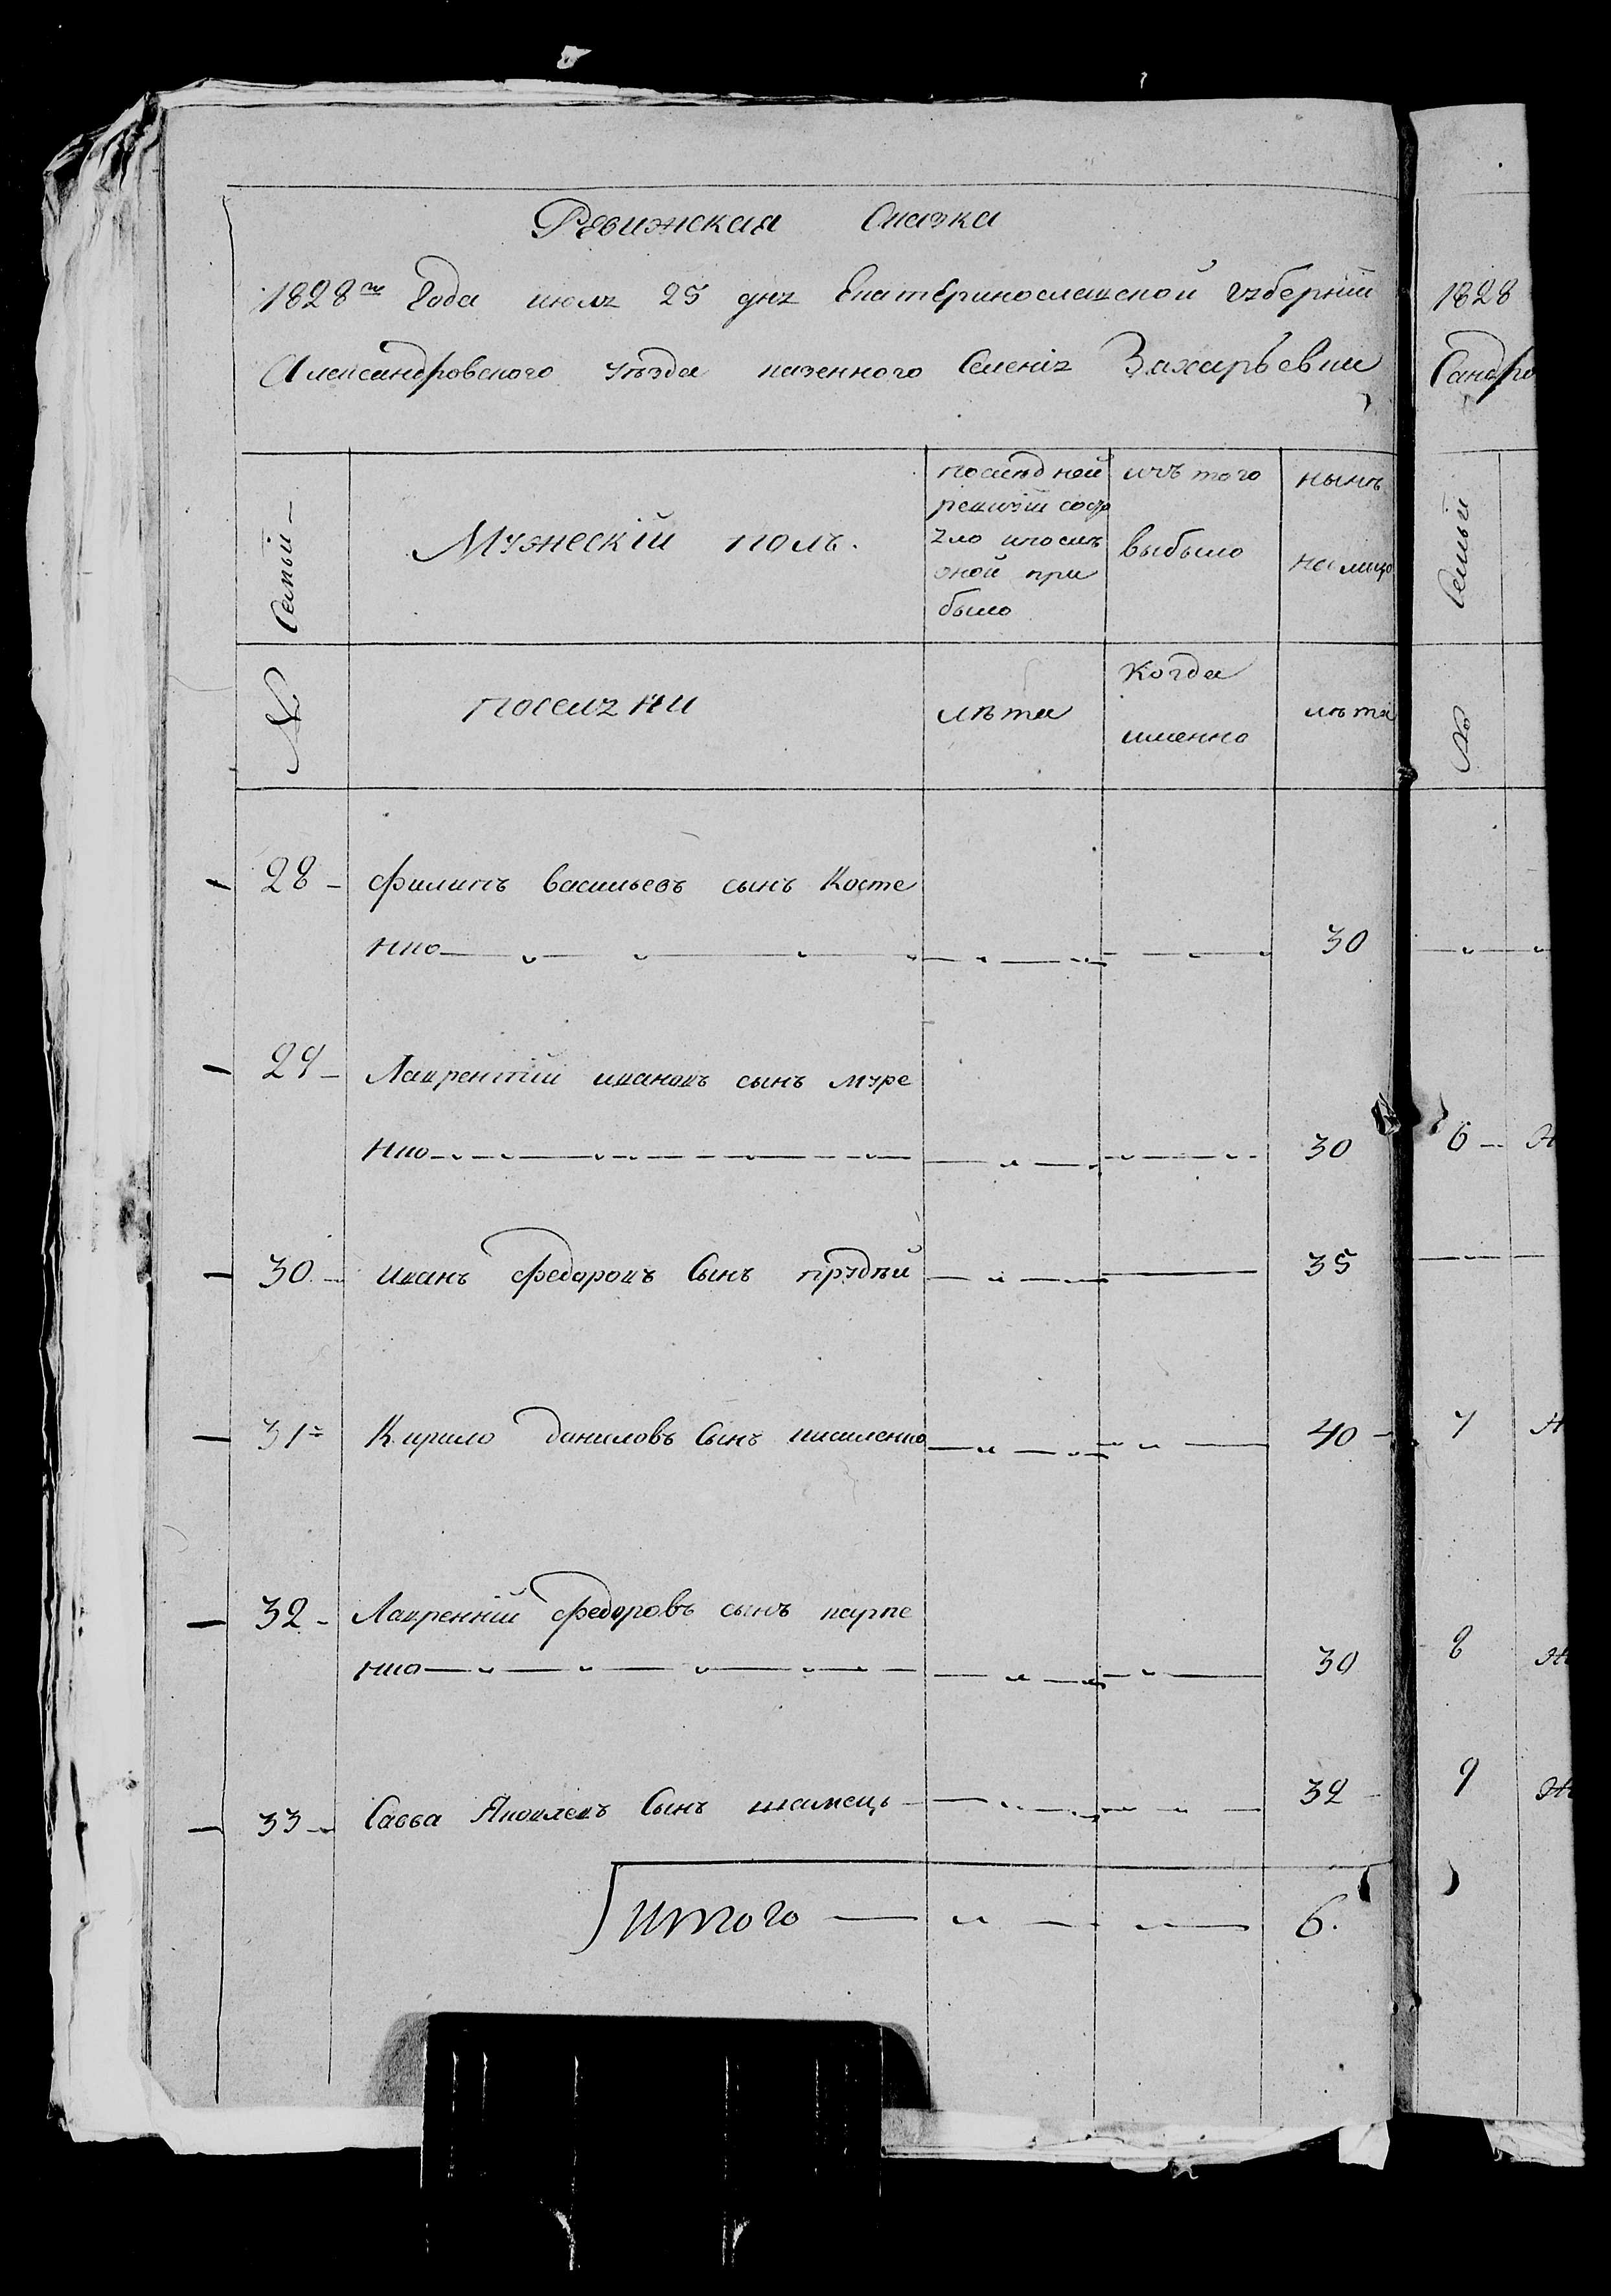 Ревижская Сказка
1828го Года июля 25 дня Екатеринославской губернии
Александровского уѣзда казенного Селения Захарьевки
Семьи
Мужескій полъ.
последней
ревизіи состо
яло ипослѣ
оной при
было
изъ того
выбыло
нынѣ
налицо
№
поселяни
лѣта
Когда
именно
лѣта
28 филипъ васильевъ сынъ Косте
нко 30
29 Лаврентий ивановъ сынъ муре
нко 30
30 иванъ федоровъ Сынъ 35
31 Кирило даниловъ Сынъ 40
32 Лавренній федоровъ сынъ карпе
нко 30
33 Савва Яковлевъ Сынъ 32
Итого 6.
1828
Сандро
Семьи
№
6
7
8
9